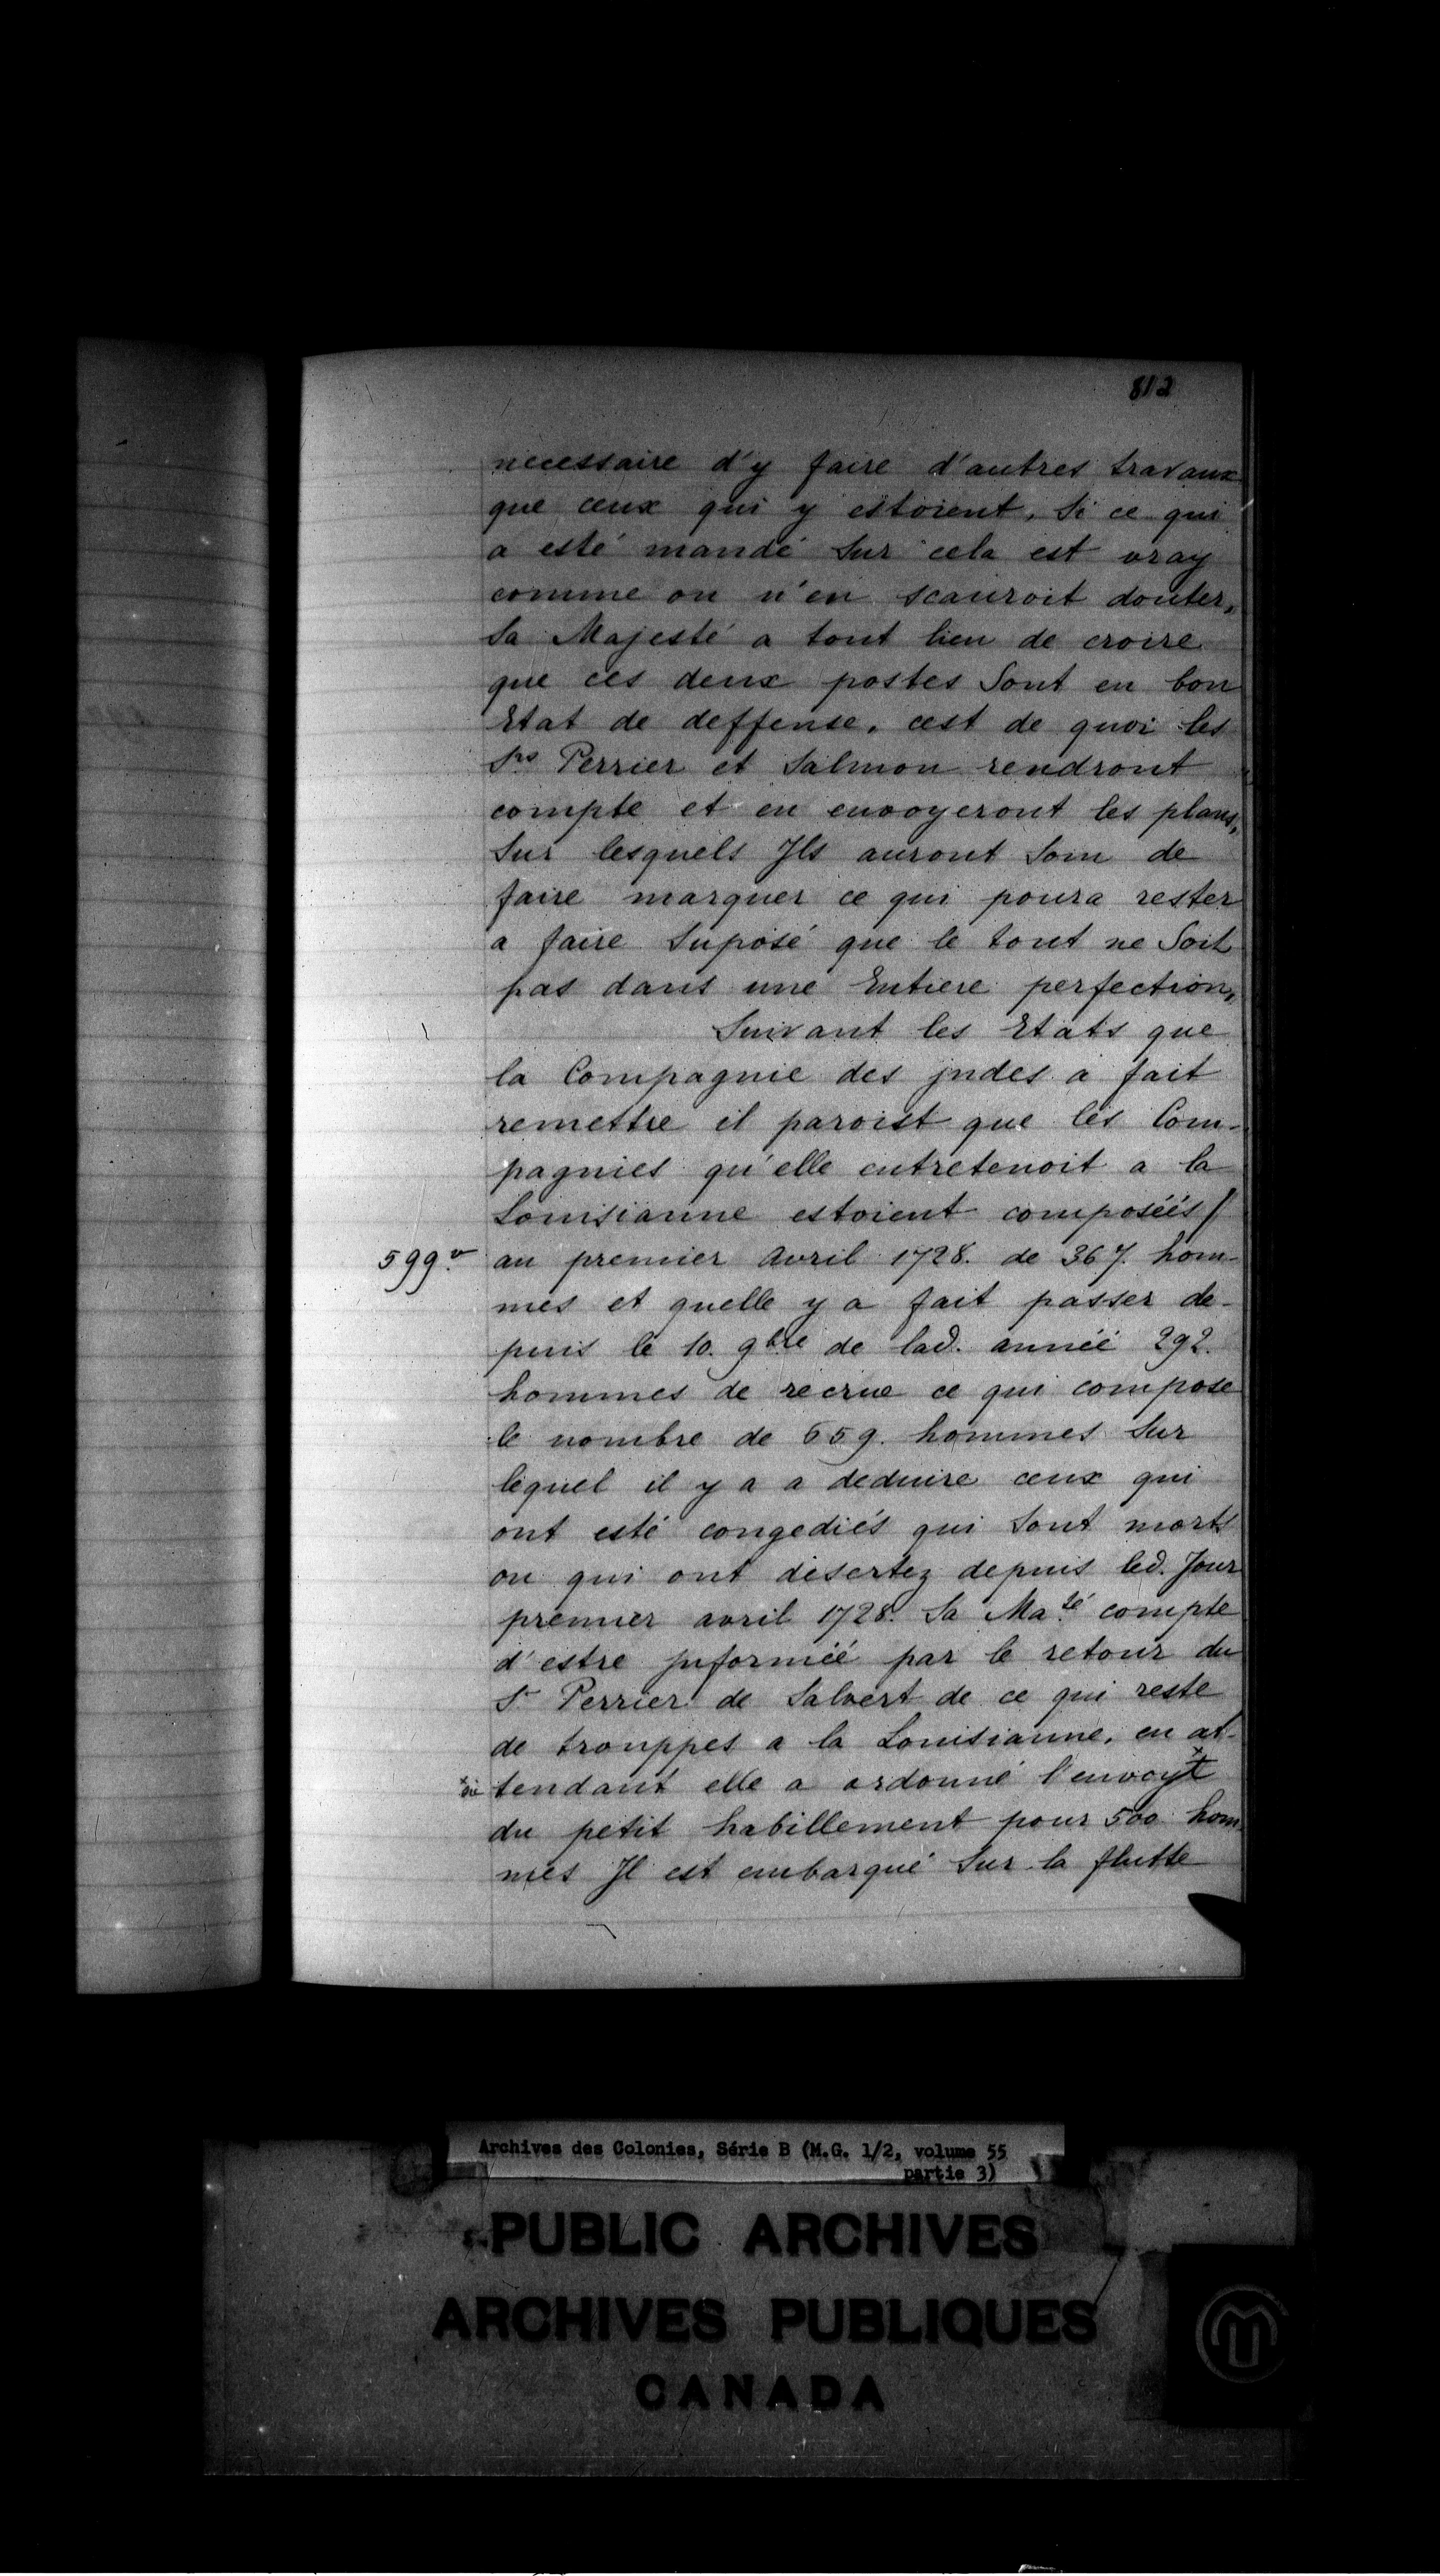 812
necessaire d'y faire d'autres travaux
que ceux qui y estoient, Si ce qui
a esté mandé Sur cela est vray
comme on n'en scauroit douter,
Sa Majesté a tout lieu de croire
que ces deux postes Sont en bon
Etat de deffense, cest de quoi les
Srs Perrier et Salmon rendront
compte et en envoyeront les plans,
Sur lesquels Jls auront Soin de
faire marquer ce qui poura rester
a faire Suposé que le tout ne Soit
pas dans une Entiere perfection,
Suivant les Etats que
la Compagnie des jndes a fait
remettre il paroist que les Com-
pagnies qu'elle entretenoit a la
Louisianne estoient composéés /
599v. au premier Avril 1728. de 367. hom-
mes et quelle y a fait passer de-
puis le 10. 9bre de lad. annéé 292.
hommes de recrue ce qui compose
le nombre de 659. hommes Sur
lequel il y a a deduire ceux qui
ont esté congediés qui Sont morts
ou qui ont desertez depuis led. Jour
premier avril 1728. Sa Maté compte
d'estre jnforméé par le retour du
Sr Perrier de Salvert de ce qui reste
de trouppes a la Louisianne, en at-
tendant elle a ordonné l'envoyt
du petit habillement pour 500 hom
mes Jl est embarqué Sur la flutte
Archives des Colonies, Série B (M.G. 1/2, volume 55
partie 3)
PUBLIC ARCHIVES
ARCHIVES PUBLIQUES
CANADA